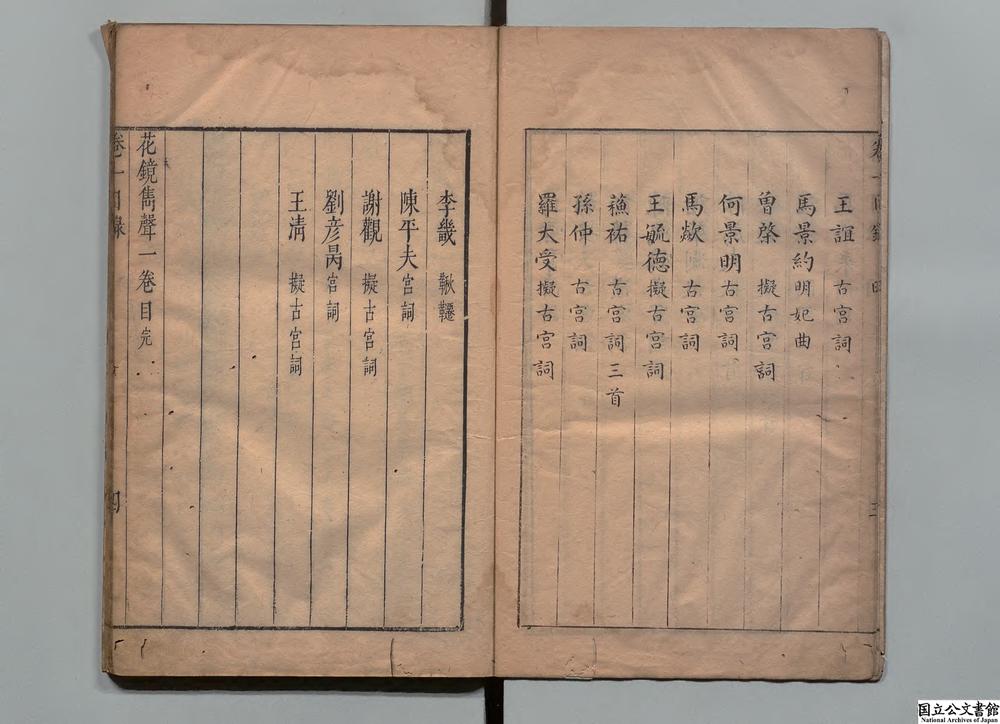 王誼 古宮詞
馬景約 明妃曲
曽棨 擬古宮詞
何景明 古宮詞
馬歘 古宮詞
王毓德 擬古宮詞
蘓祐 古宮詞三首
孫仲 古宮詞
羅大受 擬古宮詞
李畿 鞦韆
陳平夫 宮詞
謝觀 擬古宮詞
劉彦昺 宮詞
王淸 擬古宮詞
花鏡雋聲一卷目完
卷一目錄 四
国立公文書館
National Archives of Japan